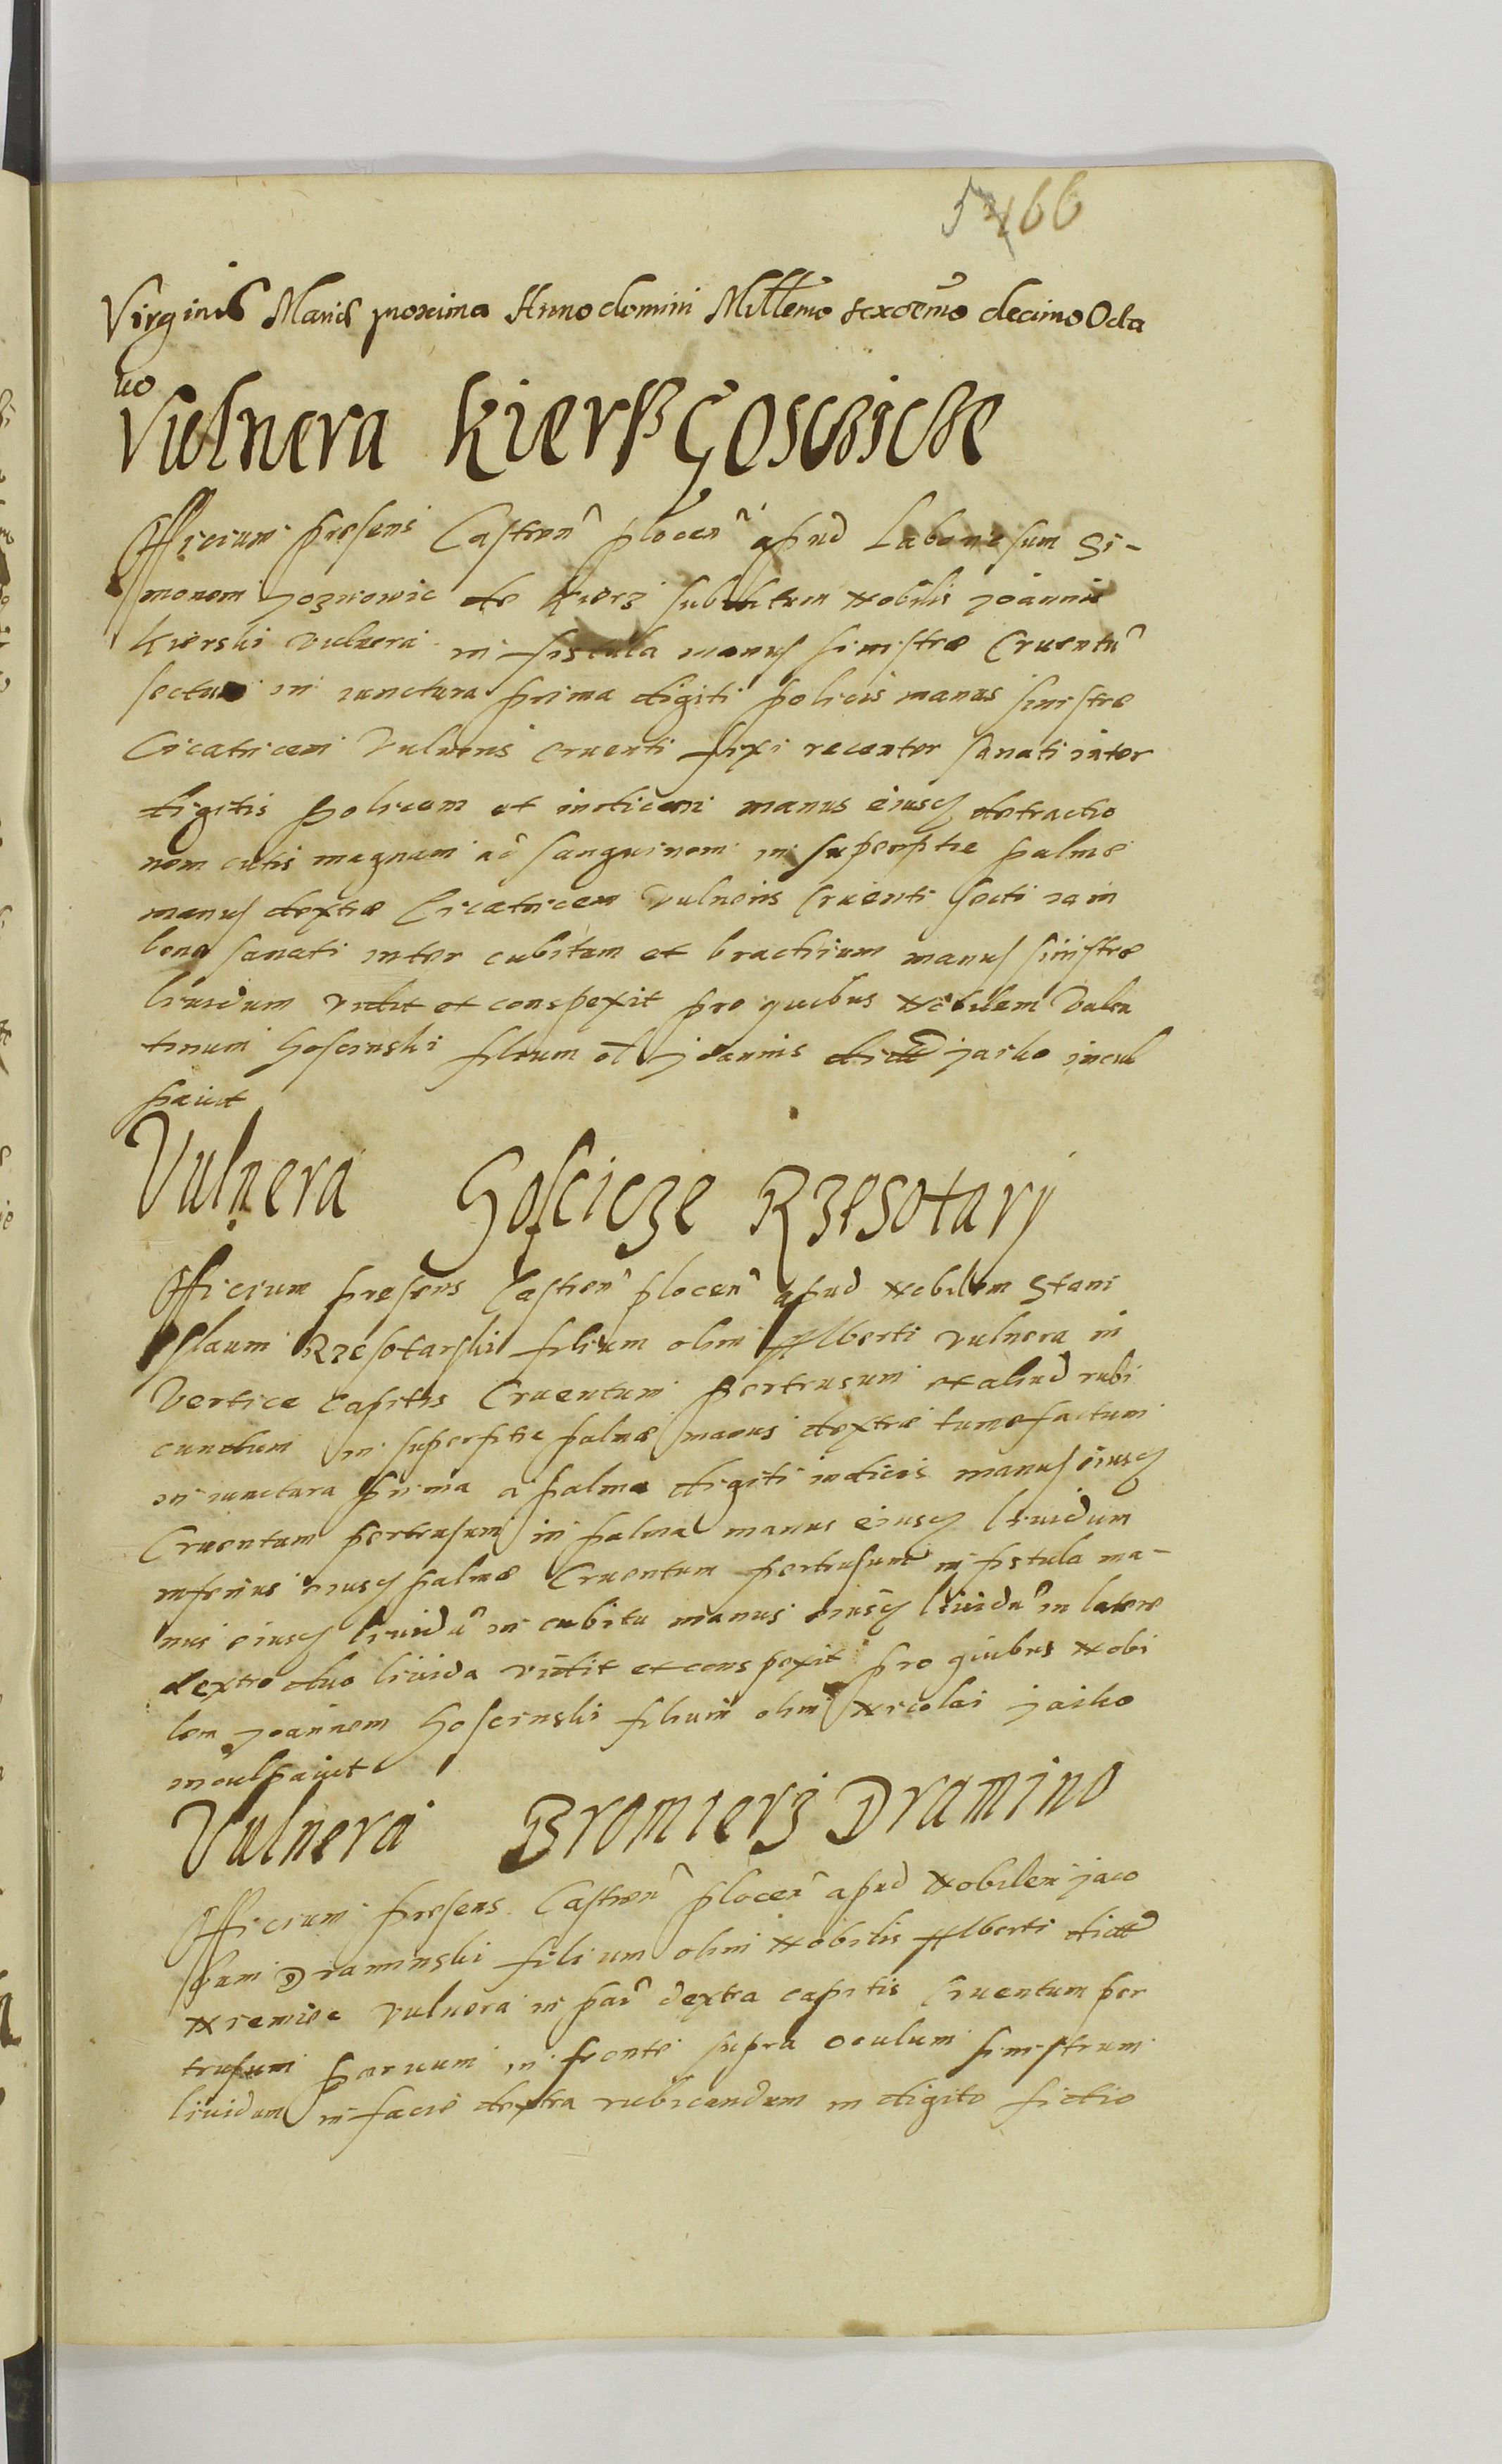 5466
Virginis Mariæ proxima Anno domini Millemo sexcemo decimo Octa
uo
Vulnera Kierß Goscicze
Officium presens Castren plocen apud Laboriosum Si-
monem de Kierz subditum Nobilis Joannis
Kierski vulnera in fistula manus sinistræ Cruentu
sectum in iunctura prima digiti policis manus sinistræ
Cicatricem Vulneris cruenti fixi recenter sanati inter
digitis policem et indicem manus eiusq detractio
nem cutis magnam ad sanguinem in superfitie palmæ
manus dextræ Cicatricem vulneris Cruenti secti iam
bene sanati inter cubitum et brachium manus sinistræ
liuidum vidit et conspexit pro quibus Nobilem Valen
tinum Goscinski filium ol Joannis dict jasko incul
pauit
Vulnera Goscicze Rzesotary
Officium presens Castren plocen apud Nobilem Stani
slaum Rzesotarski filium olim Alberti vulnera in
Vertice capitis Cruentum pertrusum et aliud rubi
cundum in superfitie palmæ manus dextræ tumefactum
in iunctura prima a palma digiti indicis manus eiusq
Cruentum pertrusum in palma manus eiusq liuidum
inferius eiusq palmæ Cruentum pertrusum in fistula ma-
nus eiusq liuidu in cubitu manus eiusq liuidu in latere
dextro duo liuida vidit et conspexit pro quibus Nobi
lem Joannem Goscinski filium olim Nicolai jasko
inculpauit
Vulnera Bromierz Dramino
Officium presens Castren plocen apud Nobilem jaco
bum Draminski filium olim Nobilis Alberti dict
vulnera in par dextra capitis Cruentum per
trusum paruum in fronte supra oculum sinistrum
liuidum in facie dextra rubicundum in digito fictio